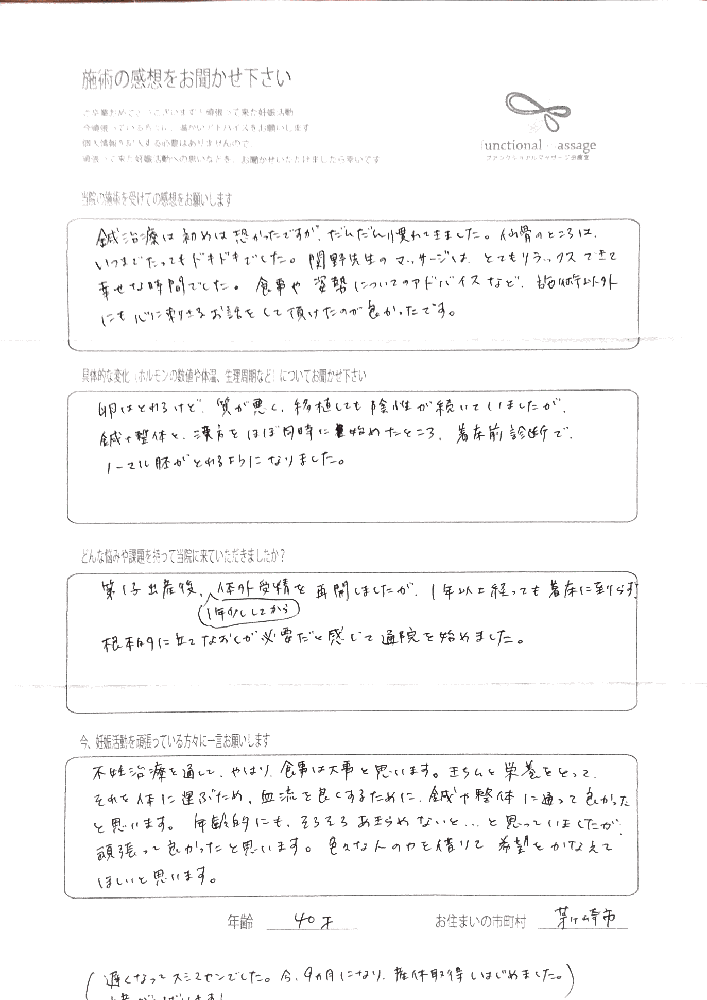 施術の感想をお聞かせ下さい
ご卒業おめでとうございます！頑張って来た妊娠活動
今頑張っている方々に、温かいアドバイスをお願いします
個人情報を記入する必要はありませんので
頑張って来た妊娠活動への思いなどを、お聞かせいただけましたら幸いです
functional massage
ファンクショナルマッサージ治療室
当院の施術を受けての感想をお願いします
鍼治療は初めは恐かったですが、だんだん慣れてきました。仙骨のところは、
いつまでたってもドキドキでした。関野先生のマッサージは、とてもリラックスできて
幸せな時間でした。食事や姿勢についてのアドバイスなど、施術以外
にも心に刺さるお話をして頂けたのが良かったです。
具体的な変化（ホルモンの数値や体温、生理周期など）についてお聞かせ下さい
卵はとれるけど、質が悪く、移植しても陰性が続いていましたが、
鍼や整体と、漢方をほぼ同時に始めたところ、着床前診断で、
ノーマル胚がとれるようになりました。
どんな悩みや課題を持って当院に来ていただきましたか？
第1子出産後、体外受精を再開しましたが、1年以上経っても着床に至らず
1年少ししてから
根本的に立てなおしが必要だと感じて通院を始めました。
今、妊娠活動を頑張っている方々に一言お願いします
不妊治療を通して、やはり、食事は大事と思います。きちんと栄養をとって、
それを体に運ぶため、血流を良くするために、鍼や整体に通って良かった
と思います。年齢的にも、そろそろあきらめないと…と思っていましたが、
頑張って良かったと思います。色々な人の力を借りて希望をかなえて
ほしいと思います。
年齢 40才 お住まいの市町村 茅ヶ崎市
(遅くなってスミマセンでした。今、9ヵ月になり、産休取得しはじめました。)